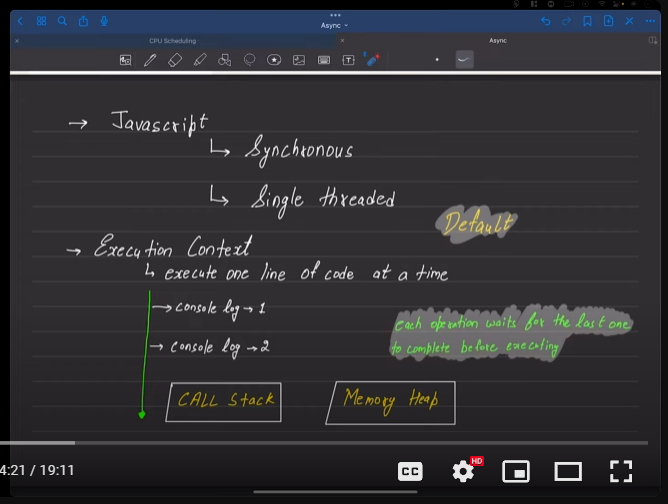 Async
CPU Scheduling
Async
→ Javascript
↳ Synchronous
↳ Single threaded
Default
→ Execution Context
↳ execute one line of code at a time
→ console log → 1
→ console log → 2
each operation waits for the last one
to complete before executing
CALL Stack
Memory Heap
4:21 / 19:11
CC
HD